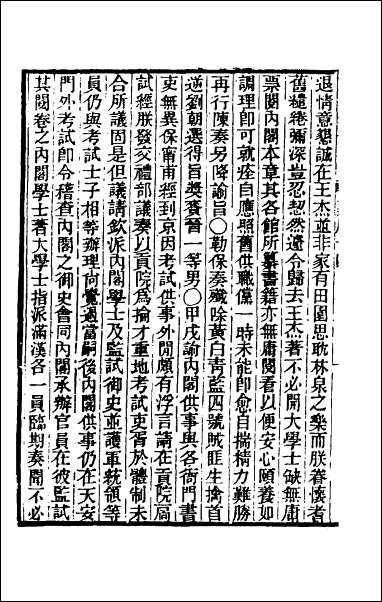 退情意懇誠在王杰並非家有田園思耽林泉之樂而朕眷懷耆
舊繾綣彌深豈忍恝然遽令歸去王杰著不必開大學士缺無庸
票閱內閣本章其各館所纂書籍亦無庸閱看以便安心頤養如
調理即可就痊自應照舊供職儻一時未能即愈自揣精力難勝
再行陳奏另降諭旨〇勒保奏殲除黃白青藍四號賊匪生擒首
逆劉朝選得旨獎賚晉一等男〇甲戌諭內閣供事與各衙門書
吏無異保甯甫經到京因考試供事外閒頗有浮言請在貢院局
試經朕發交禮部議奏以貢院爲掄才重地考試吏胥於體制未
合所議固是但議請欽派內閣學士及監試御史並護軍統領等
員仍與考試士子相等辦理何覺過當嗣後內閣供事仍在天安
門外考試即令稽查內閣之御史會同內閣承辦官員在彼監試
其閱卷之內閣學士著大學士指派滿漢各一員臨期奏聞不必